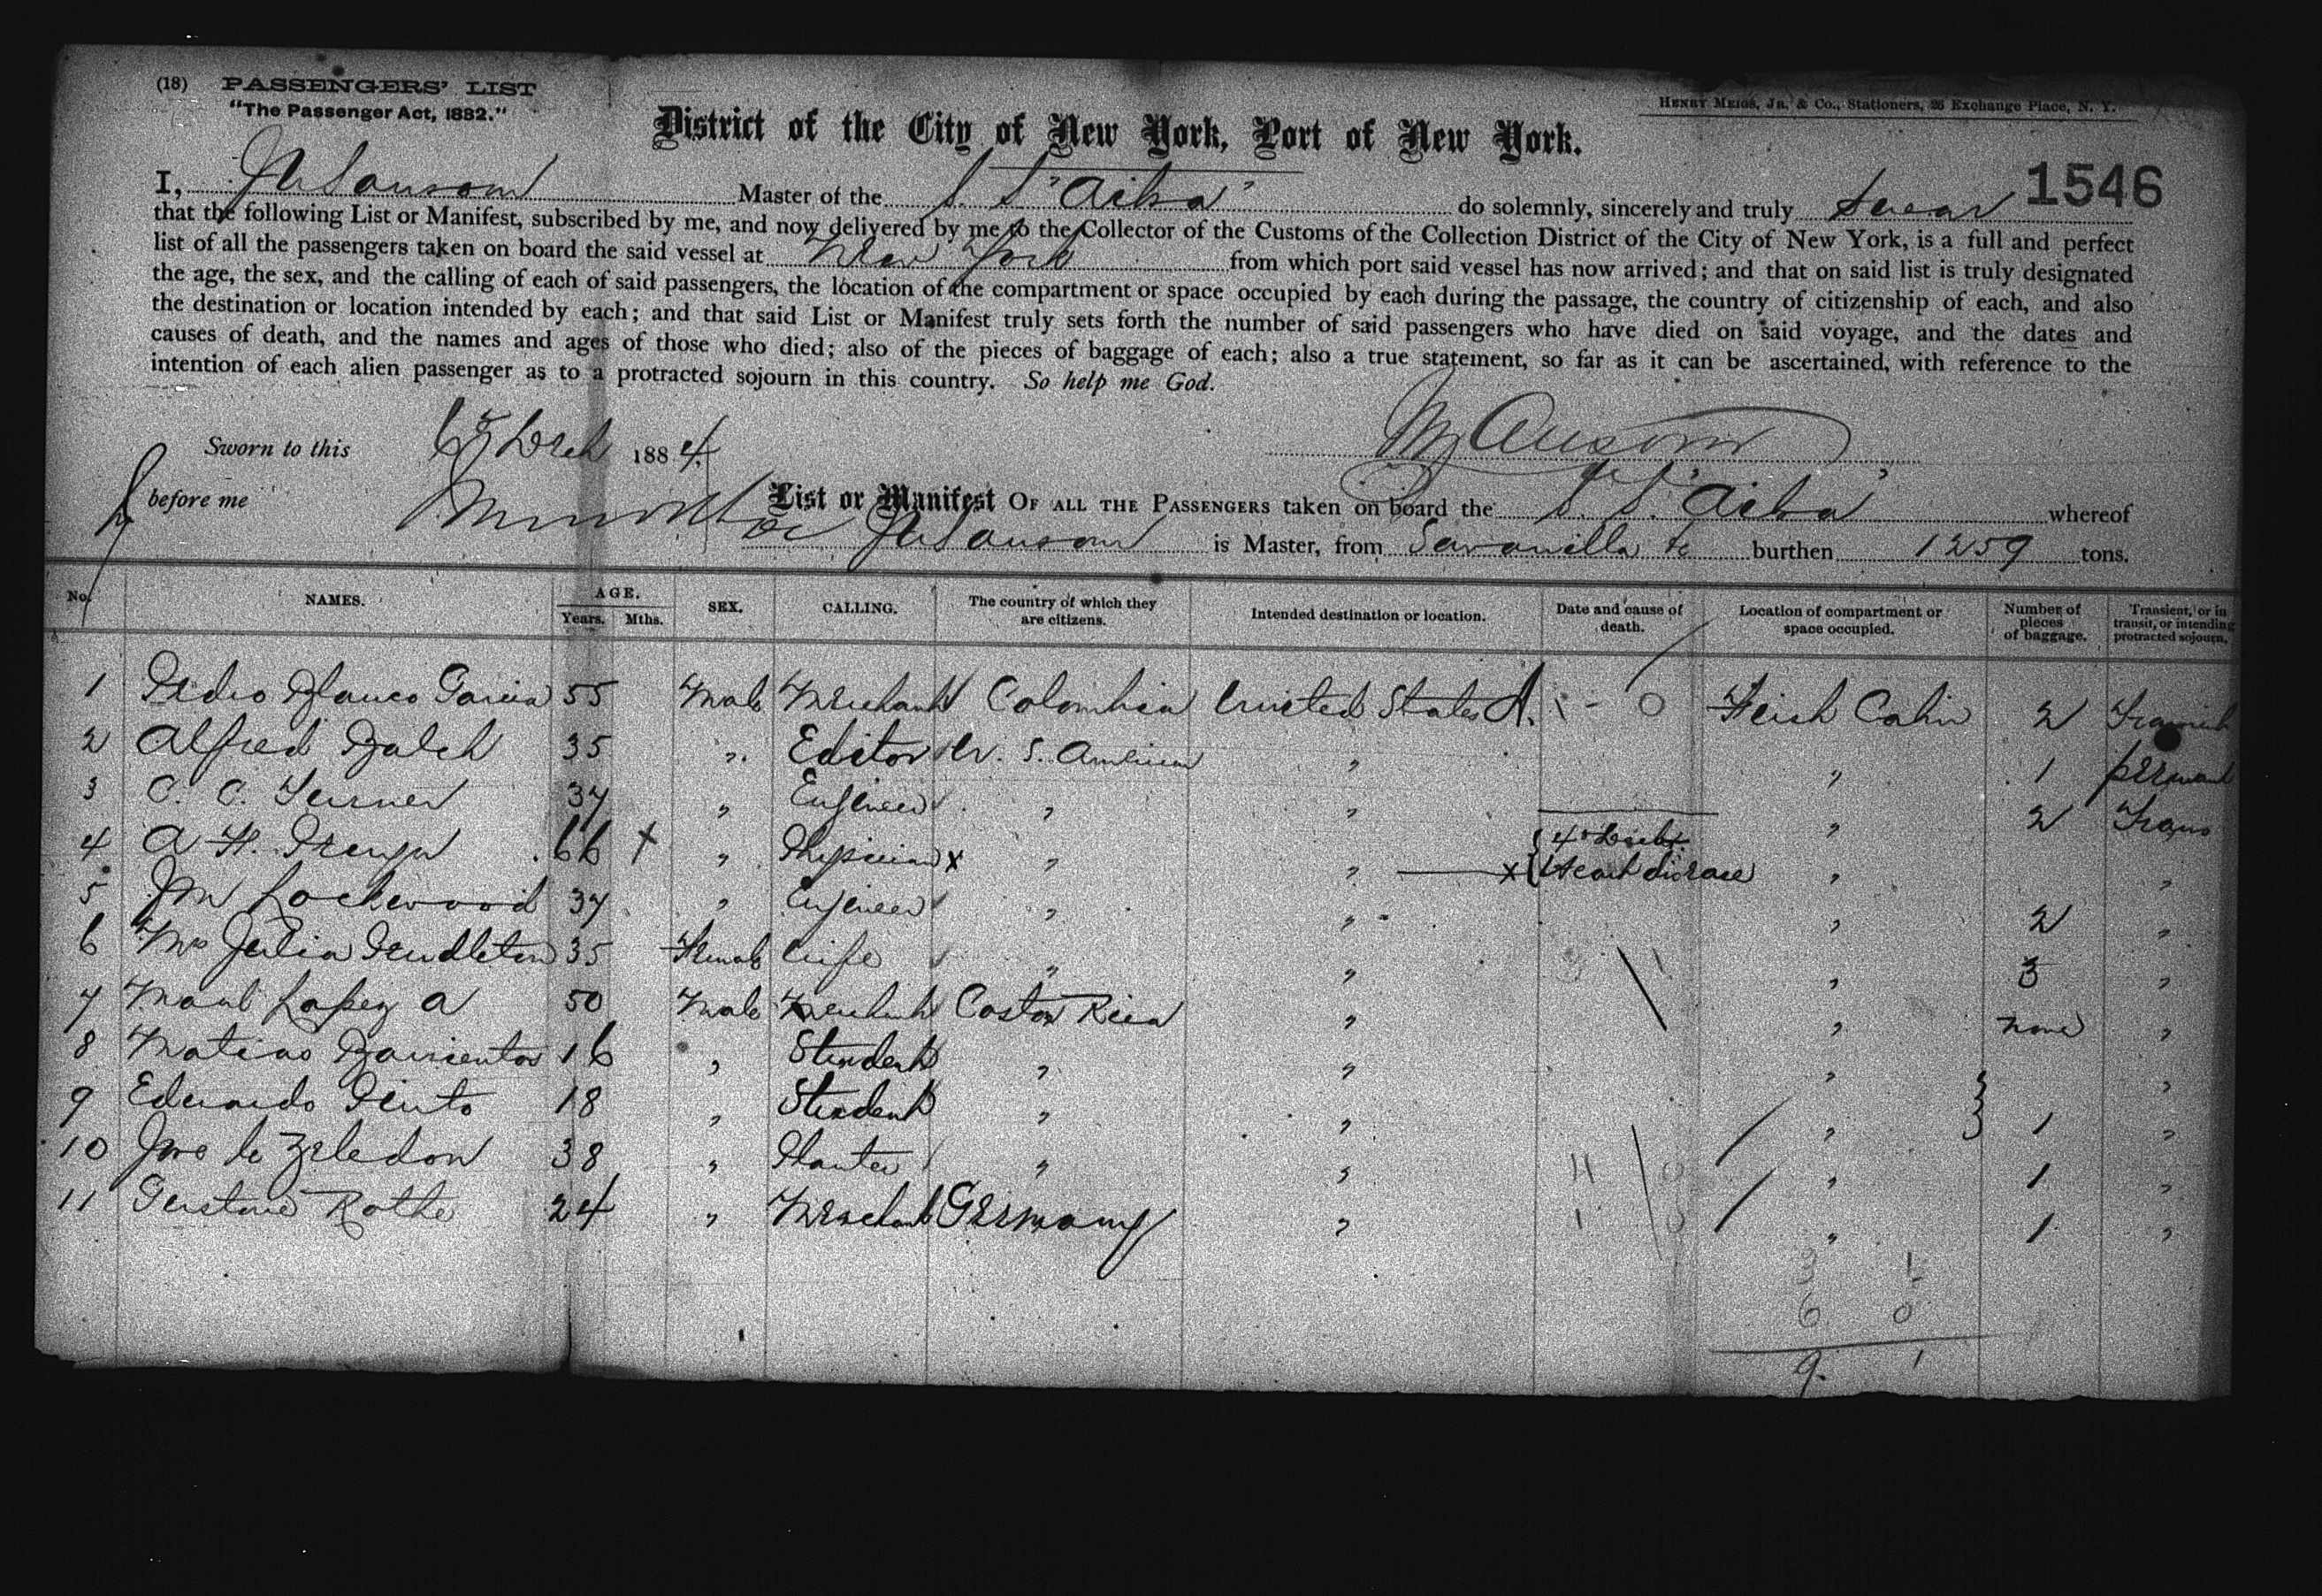 (18) PASSENGERS' LIST
"The Passenger Act, 1882."
HENRY MEIGS, JR. & CO., Stationers, 26 Exchange Place, N. Y.
District of the City of New York, Port of New York.
1546
I, Master of the S. S. "Ailsa" do solemnly, sincerely and truly swear
that the following List or Manifest, subscribed by me, and now delivered by me to the Collector of the Customs of the Collection District of the City of New York, is a full and perfect
list of all the passengers taken on board the said vessel at New York from which port said vessel has now arrived; and that on said list is truly designated
the age, the sex, and the calling of each of said passengers, the location of the compartment or space occupied by each during the passage, the country of citizenship of each, and also
the destination or location intended by each; and that said List or Manifest truly sets forth the number of said passengers who have died on said voyage, and the dates and
causes of death, and the names and ages of those who died; also of the pieces of baggage of each; also a true statement, so far as it can be ascertained, with reference to the
intention of each alien passenger as to a protracted sojourn in this country. So help me God.
Sworn to this 1884
before me
List or Manifest OF ALL THE PASSENGERS taken on board the S. S. "Ailsa" whereof
is Master, from Savanilla &c burthen 1259 tons.
No. NAMES. AGE. Years. Mths. SEX. CALLING. The country of which they are citizens. Intended destination or location. Date and cause of death. Location of compartment or space occupied. Number of pieces of baggage. Transient, or in transit, or intending protracted sojourn.
1 Pedro Blanco Garcia 55 Male Merchant Colombia United States A. 0 First Cabin 2 Transient
2 Alfred Balch 35 " Editor U. S. America " " 1 permant
3 C. C. Turner 37 " Engineer " " " 2 Trans
4 A. H. 66 + " Physician x " " x { 4th Decbr. Heart disease " "
5 Lockwood 37 " Engineer " " " 2 "
6 Mrs Julia Pendleton 35 Female Wife " " " 3 "
7 Manl Lopez A 50 Male Merchant Costa Rica " " none "
8 Matias Barrientos 16 " Student " " " "
9 Eduardo Pinto 18 " Student " " " } 1 "
10 Zeledon 38 " Planter " " " 1 "
11 Gustave Rothe 24 " Merchant Germany " " 1 "
3 1
6 0
9. 1